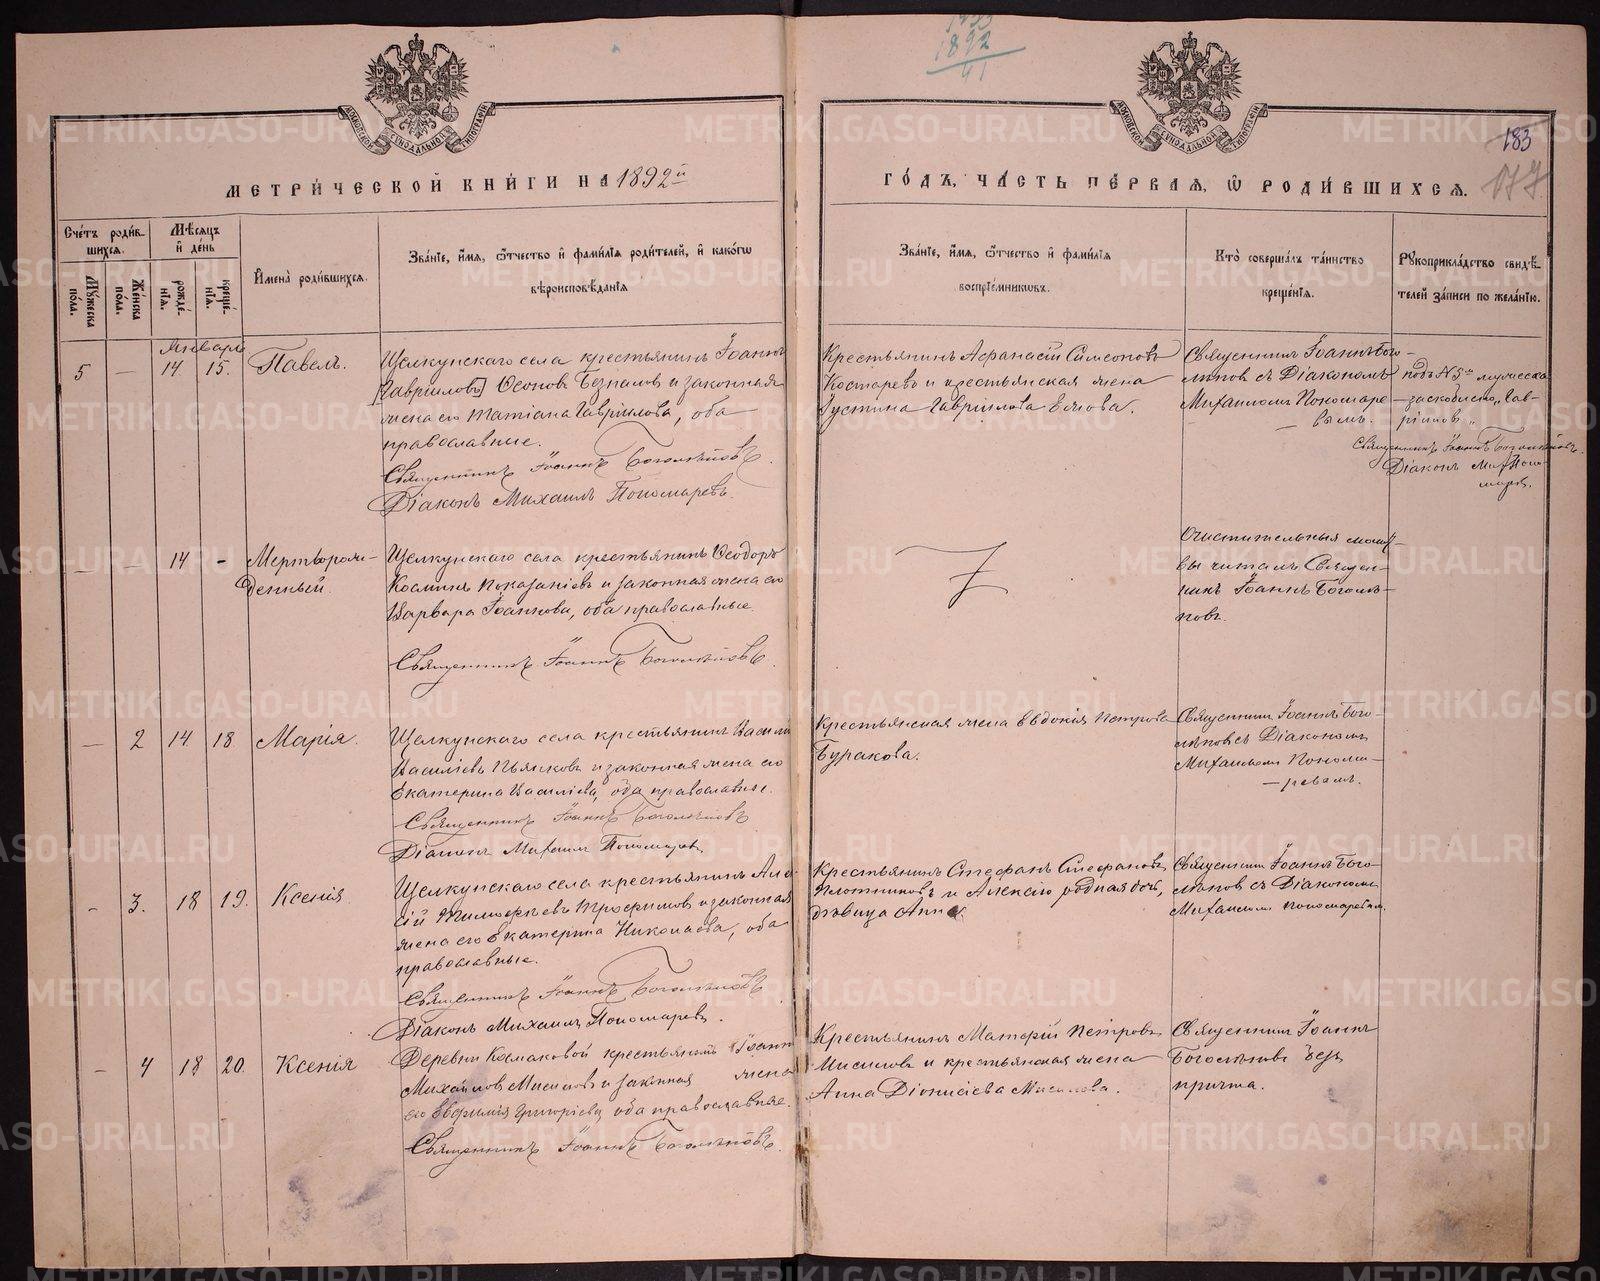 1892
41
183
177
МЕТРИ́ЧЕСКОЙ КНИ́ГИ НА 1892й
ГО́ДЪ, ЧА́СТЬ ПЕ́РВАЯ, Ѡ РОДИ́ВШИХСЯ.
МОСКОВСКОЙ СѴНОДАЛЬНОЙ ТИПОГРАФІИ
МОСКОВСКОЙ СѴНОДАЛЬНОЙ ТИПОГРАФІИ
Сче́тъ роди́вшихся.
Му́жеска по́ла.
Же́нска по́ла.
Мѣ́сяцъ и́ де́нь
рожде́нїя.
креще́нїя.
И́мена̀ роди́вшихся.
Зва́нїе, и́мя, ѻ҆́тчество и́ фами́лїя роди́телей, и́ како́гѡ
вѣроисповѣ́данїя
Зва́нїе, и́мя, ѻ҆́тчество и́ фами́лїя
воспрїе́мниковъ.
Кто̀ соверша́лъ та́инство
креще́нїя.
Рꙋкоприкла́дство свидѣ́-
телей за́писи по жела́нїю.
Январь
5 — 14 15. Павелъ.
Щелкунскаго села крестьянинъ Іоаннъ
[Гавріиловъ] Ѳеоновъ Безпаловъ и законная
жена его Татіана Гавріилова, оба
православные.
Священникъ Іоаннъ Боголѣповъ.
Діаконъ Михаилъ Пономаревъ.
Крестьянинъ Аѳанасій Симеоновъ
Костарево и крестьянская жена
Іустина Гавріилова
Священникъ Іоаннъ Бого-
лѣповъ съ Діакономъ
Михаиломъ Пономаре-
— вымъ.
подъ № 5мъ мужеска
заскоблено „Гав-
ріиловъ„
Священникъ Іоаннъ Боголѣповъ.
Діаконъ Мих. Поно-
маревъ.
— — 14 - Мертворож-
денный.
Щелкунскаго села крестьянинъ Ѳеодоръ
Косминъ и законная жена его
Варвара Іоаннова, оба православные.
Священникъ Іоаннъ Боголѣповъ.
Очистительныя молит-
вы читалъ Священ-
никъ Іоаннъ Боголѣ-
повъ.
— 2 14 18 Марія.
Щелкунскаго села крестьянинъ Василій
Василіевъ Пьянковъ и законная жена его
Екатерина Василіева, оба православные.
Священникъ Іоаннъ Боголѣповъ
Діаконъ Михаилъ Пономаревъ
Крестьянская жена Евдокія Петрова
Буракова.
Священникъ Іоаннъ Бого-
лѣповъ съ Діакономъ
Михаиломъ Понома-
— ревымъ.
- 3. 18 19. Ксенія.
Щелкунскаго села крестьянинъ Алек-
сій Тимоѳеевъ Трофимовъ и законная
жена его Екатерина Николаева, оба
православные.
Священникъ Іоаннъ Боголѣповъ
Діаконъ Михаилъ Пономаревъ.
Крестьянинъ Стефанъ Стефановъ
Плотниковъ и Алексію родная дочь,
дѣвица Анна.
Священникъ Іоаннъ Бого-
лѣповъ съ Діакономъ
Михаиломъ Пономаревымъ.
- 4 18 20. Ксенія
Деревни Космаковой крестьянинъ Іоаннъ
Михайловъ Мисиловъ и законная жена
его Евфимія Григоріева, оба православные.
Священникъ Іоаннъ Боголѣповъ.
Крестьянинъ Матѳій Петровъ
Мисиловъ и крестьянская жена
Анна Діонисіева Мисилова.
Священникъ Іоаннъ
Боголѣповъ безъ
причта.
METRIKI.GASO-URAL.RU